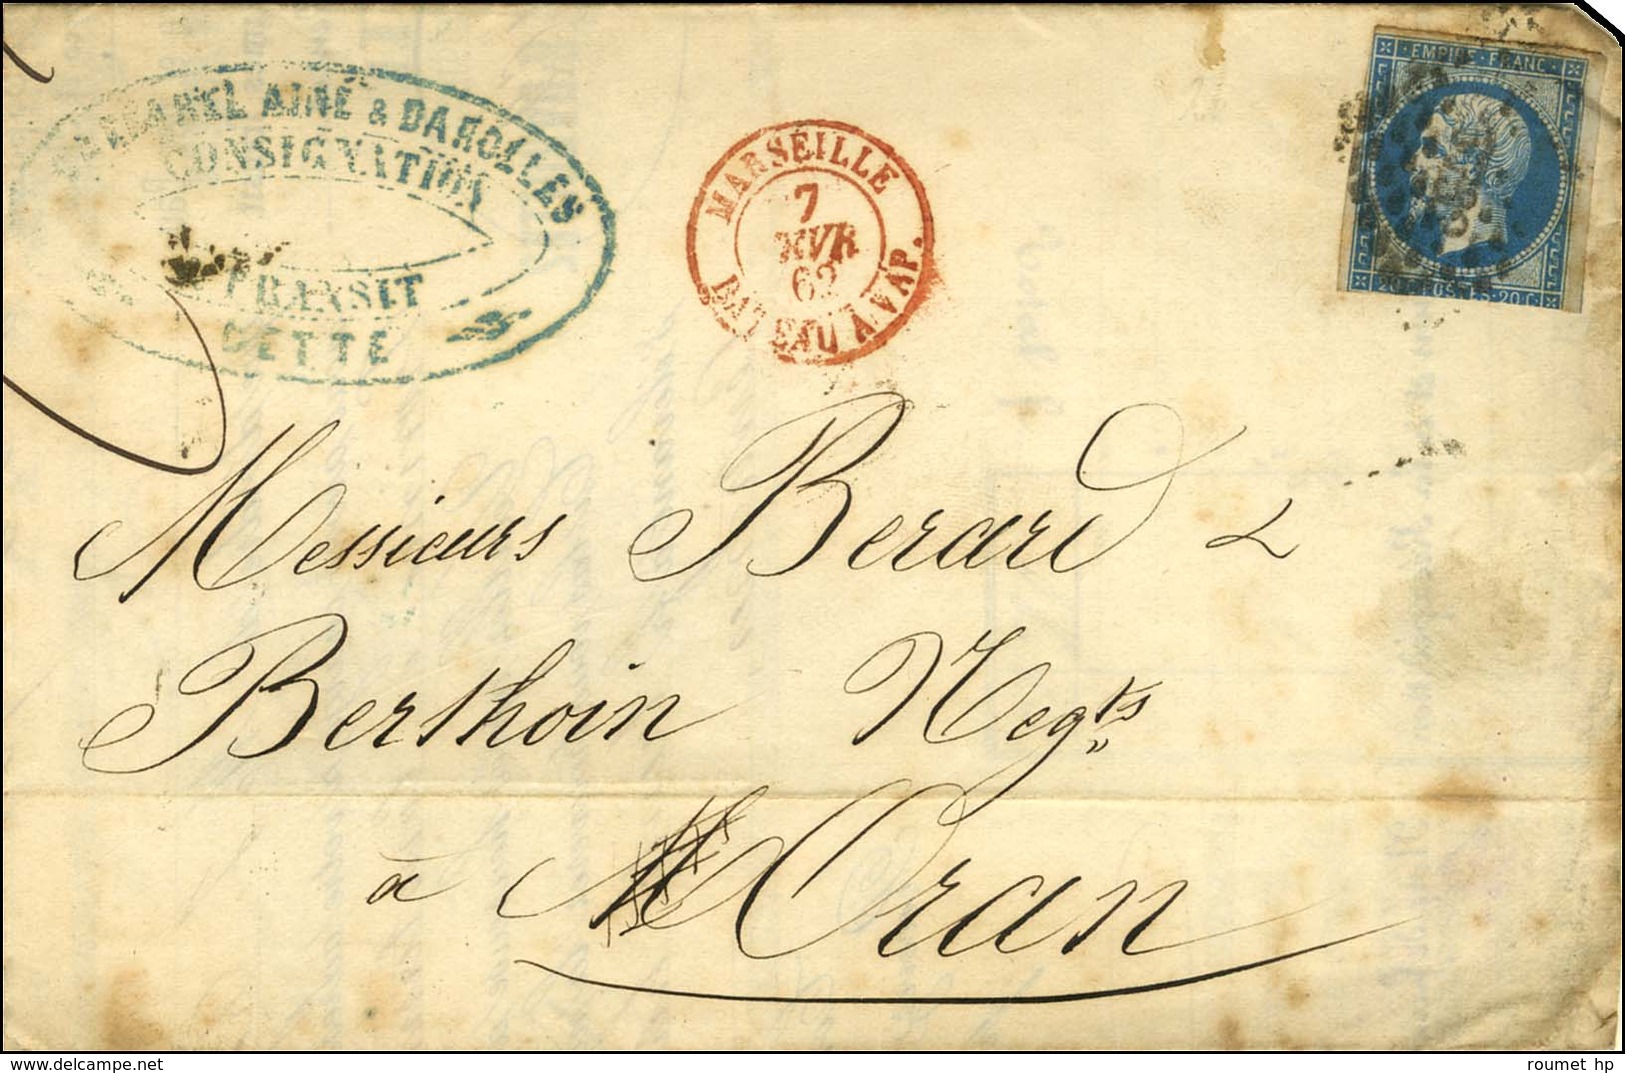 AINÉ & DAROLLES
CONSIGNATION
TRANSIT
CETTE
MARSEILLE
7
AVR
62
BATEAU À VAP.
EMPIRE FRANC
20 C POSTES 20 C
Messieurs Berard &
Berthoin Negts
à Oran
www.delcampe.net
roumet hp